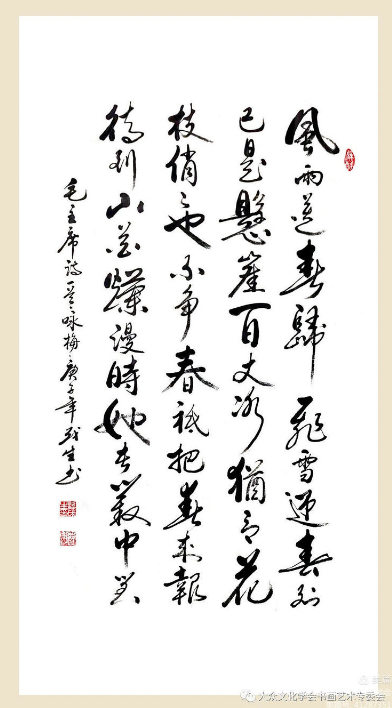 風雨送春歸飛雪迎春到
已是懸崖百丈冰猶有花
枝俏俏也不争春祗把春來報
待到山花爛漫時她在叢中笑
毛主席詩一首咏梅庚子年
大众文化学会书画艺术专委会